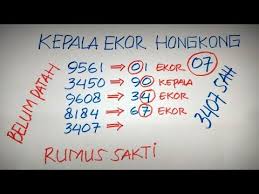 KEPALA EKOR HONGKONG
9561 → 01 EKOR 07
3450 → 90 KEPALA
9608 → 34 EKOR
8184 → 67 EKOR
3407 →
BELUM PATAH
3407 SAH
RUMUS SAKTI